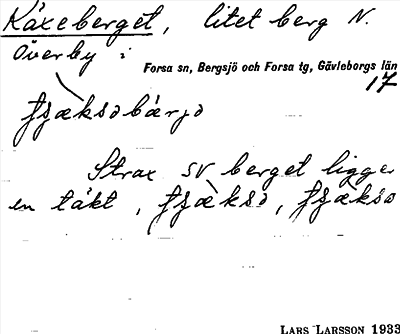 Käxeberget, litet berg N.
Överby i
Forsa sn, Bergsjö och Forsa tg, Gävleborgs län
17
fʒæksəbærjə
Strax SV berget ligger
en täkt, fʒæksə, fʒæksa
LARS LARSSON 1933